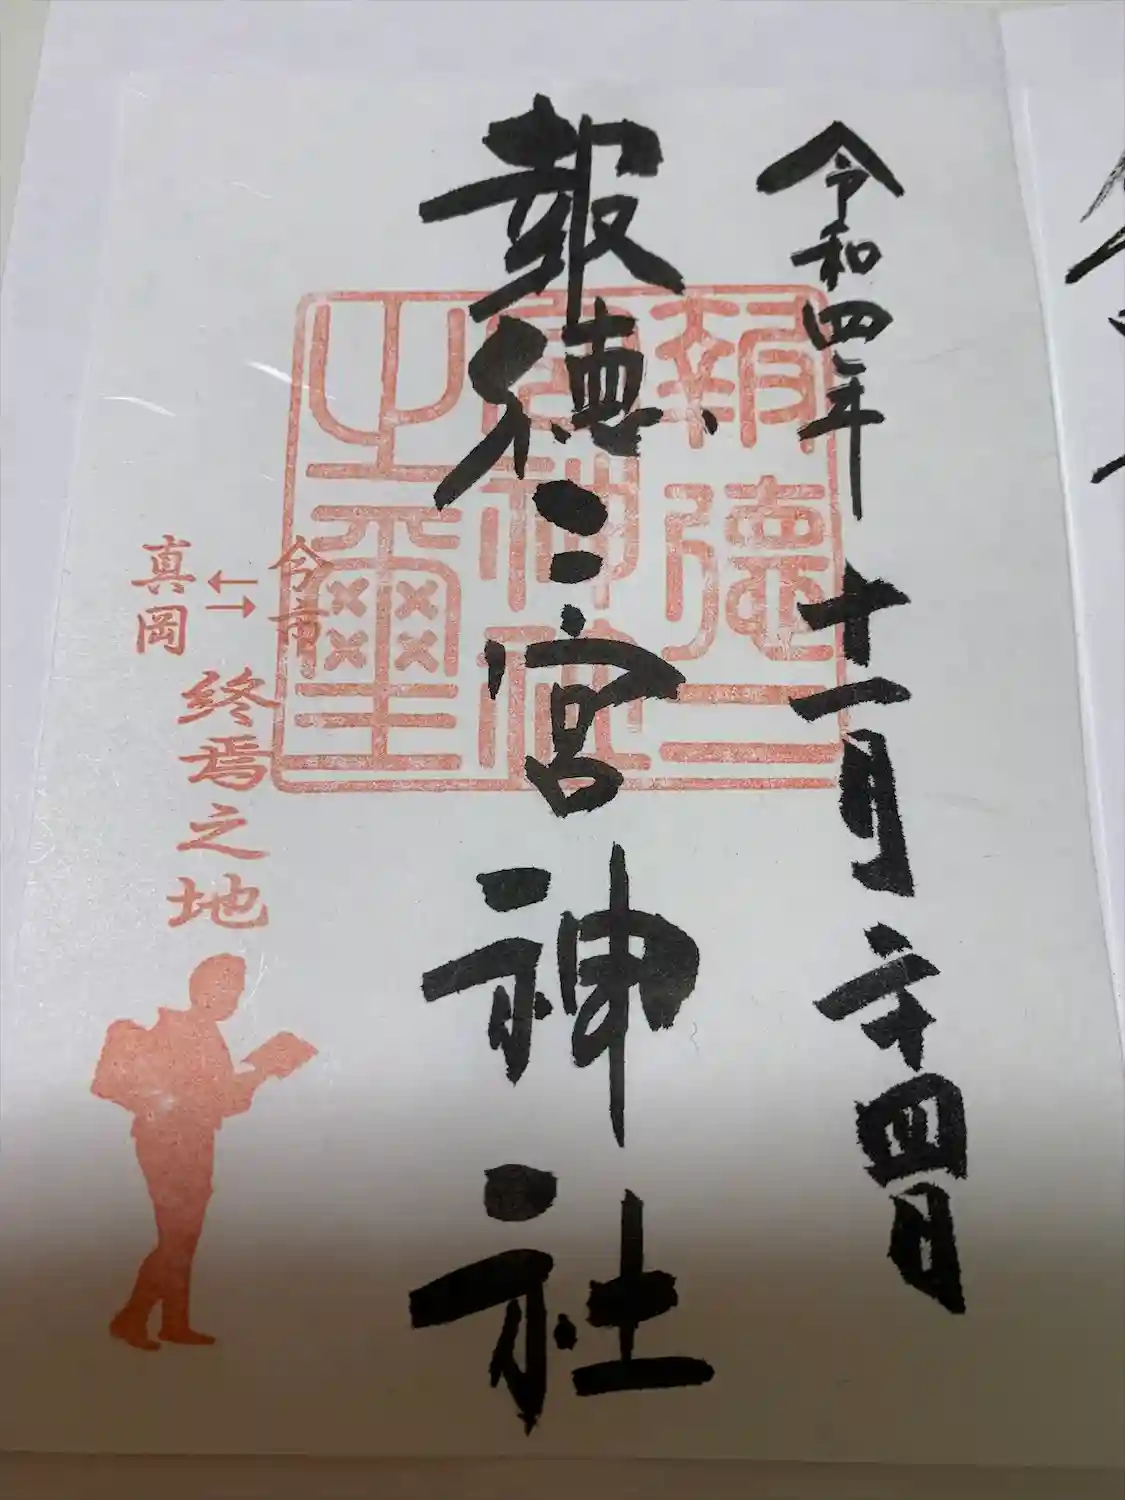 令和四年十一月二十四日
報徳二宮神社
報徳二
宮神社
之璽
今市
←
→
真岡
終焉之地